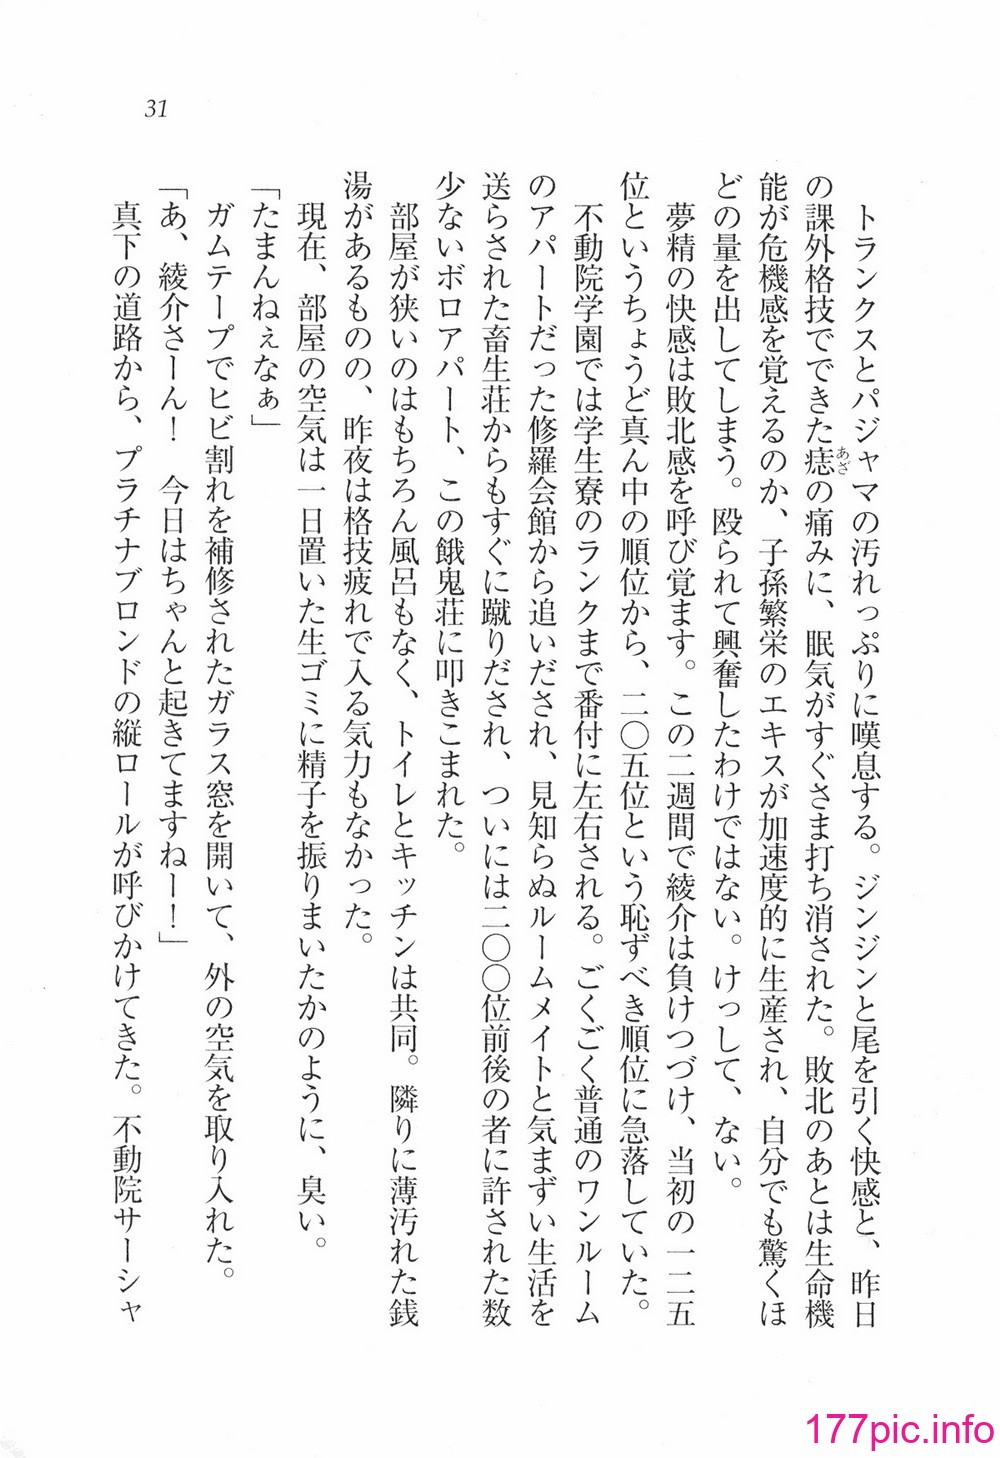 31
トランクスとパジャマの汚れっぷりに嘆息する。ジンジンと尾を引く快感と、昨日
の課外格技でできた痣あざの痛みに、眠気がすぐさま打ち消された。敗北のあとは生命機
能が危機感を覚えるのか、子孫繁栄のエキスが加速度的に生産され、自分でも驚くほ
どの量を出してしまう。殴られて興奮したわけではない。けっして、ない。
夢精の快感は敗北感を呼び覚ます。この二週間で綾介は負けつづけ、当初の一二五
位というちょうど真ん中の順位から、二〇五位という恥ずべき順位に急落していた。
不動院学園では学生寮のランクまで番付に左右される。ごくごく普通のワンルーム
のアパートだった修羅会館から追いだされ、見知らぬルームメイトと気まずい生活を
送らされた畜生荘からもすぐに蹴りだされ、ついには二〇〇位前後の者に許された数
少ないボロアパート、この餓鬼荘に叩きこまれた。
部屋が狭いのはもちろん風呂もなく、トイレとキッチンは共同。隣りに薄汚れた銭
湯があるものの、昨夜は格技疲れで入る気力もなかった。
現在、部屋の空気は一日置いた生ゴミに精子を振りまいたかのように、臭い。
「たまんねぇなぁ」
ガムテープでヒビ割れを補修されたガラス窓を開いて、外の空気を取り入れた。
「あ、綾介さーん！　今日はちゃんと起きてますねー！」
真下の道路から、プラチナブロンドの縦ロールが呼びかけてきた。不動院サーシャ
177pic.info